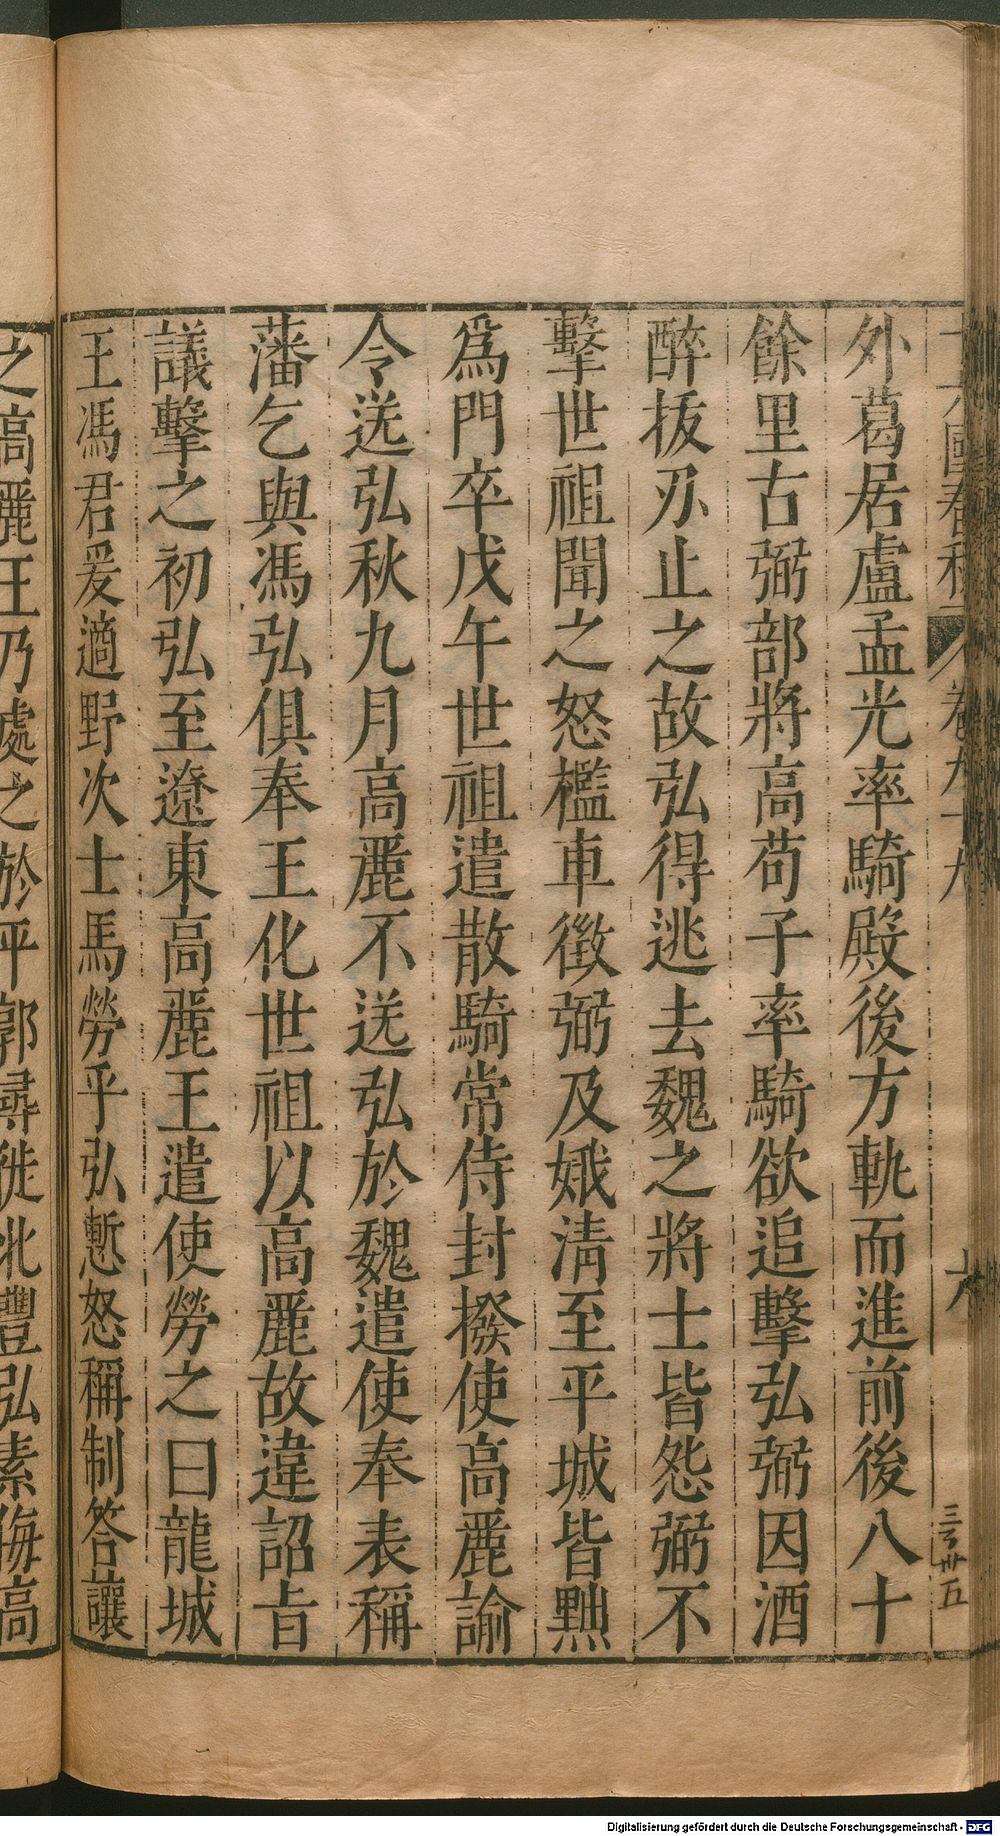 十六國春秋 卷九十九 六
三百卅五
外葛居盧孟光率騎殿後方軌而進前後八十
餘里古弼部將高苟子率騎欲追擊弘弼因酒
醉拔刃止之故弘得逃去魏之將士皆怨弼不
擊世祖聞之怒檻車徵弼及娥淸至平城皆黜
爲門卒戊午世祖遣散騎常侍封撥使高麗諭
令送弘秋九月高麗不送弘於魏遣使奉表稱
藩乞與馮弘俱奉王化世祖以高麗故違詔旨
議擊之初弘至遼東高麗王遣使勞之曰龍城
王馮君爰適野次士馬勞乎弘慙怒稱制答讓
之高麗王乃處之於平郭尋徙北豐弘素侮高
Digitalisierung gefördert durch die Deutsche Forschungsgemeinschaft - DFG